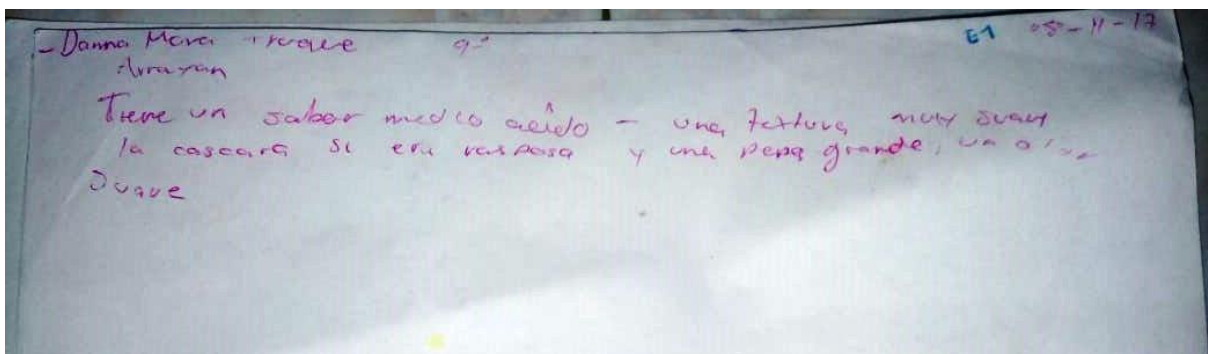 - Danna Mora 9-° E1 08-11-17
Arrayan
Tiene un sabor medio acido - una textura muy suave
la cascara si era rasposa y una pepa grande, un
suave